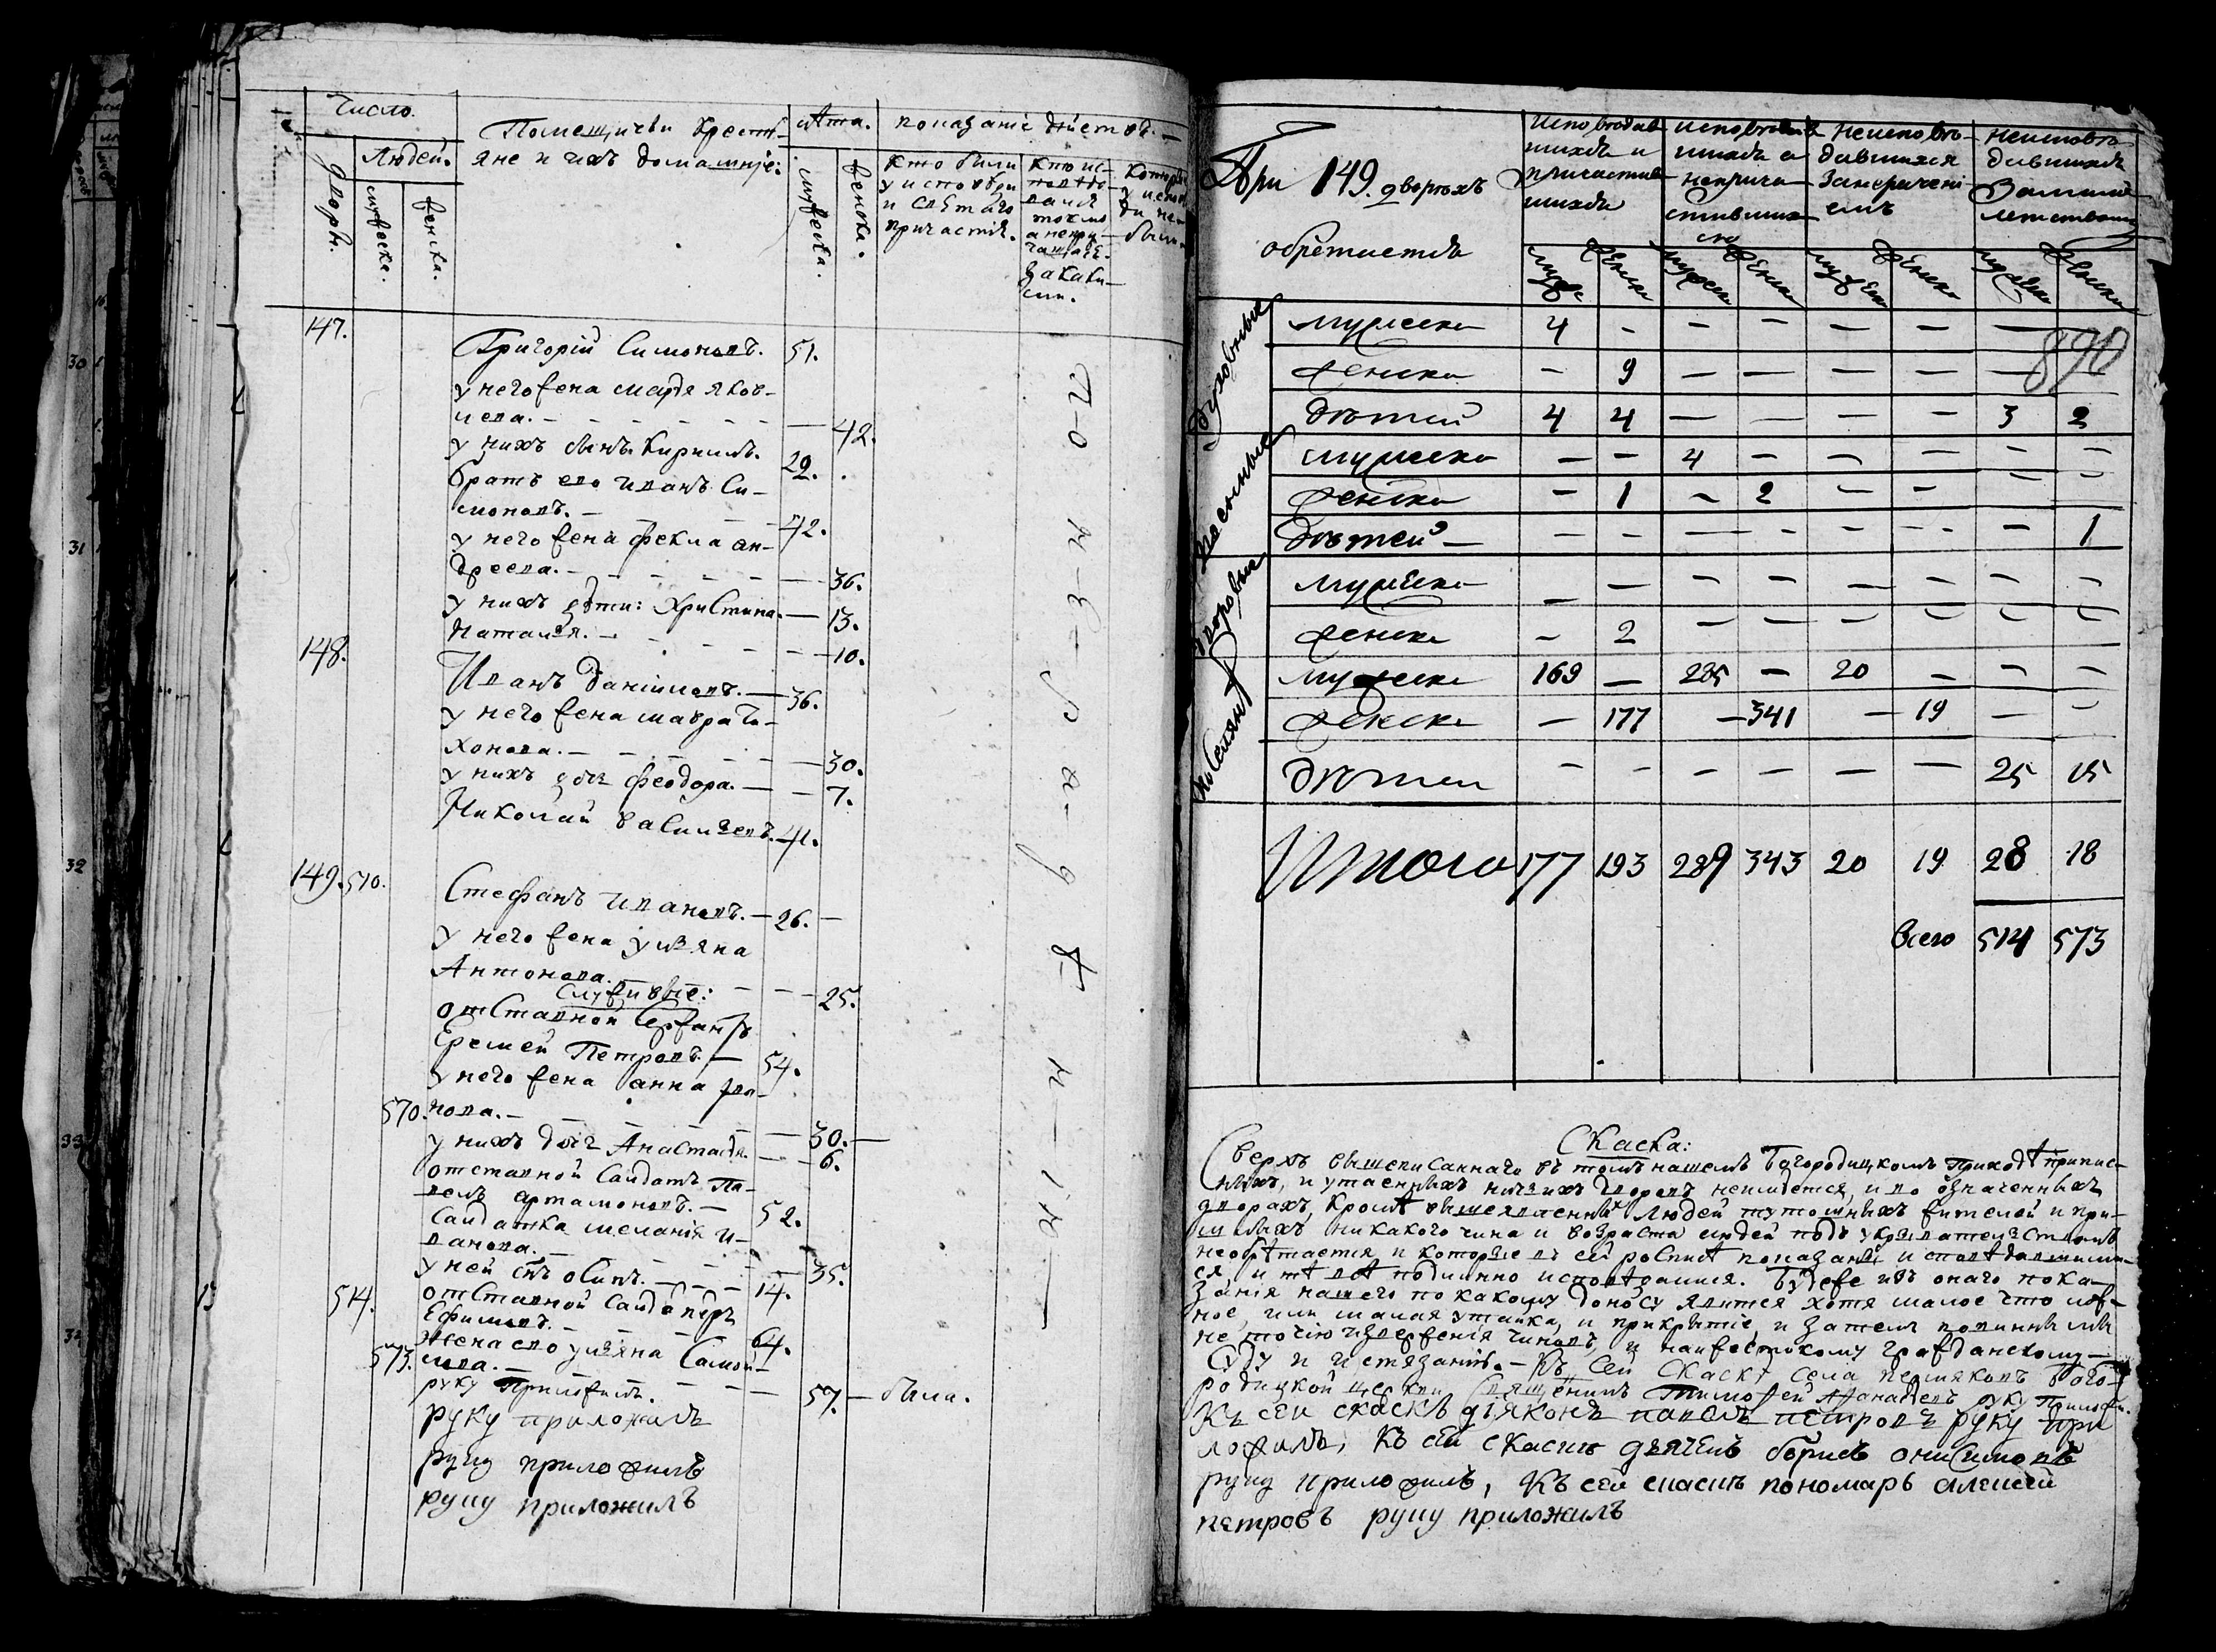 Число.
Людей.
дворы.
мужеска.
женска.
Помещичьи Кресть-
яне и ихъ домашніе:
Лѣта.
мужеска.
женска.
показаніе дѣйствъ.
кто были
у исповѣди
и святаго
причастія.
кто ис-
повѣдо-
вался
токмо
а непри-
чащался.
147.
Григорій Симоновъ. 51.
у него жена марѳя яков-
лева. — 42.
у нихъ сынъ Кирилъ. 22.
братъ его иванъ Си-
моновъ. — 42.
у него жена фекла ан-
дреева. — 36.
у нихъ дѣти: Христина. — 13.
Наталья. — 10.
148.
Иванъ Даніиловъ. — 36.
у него жена мавра Ти-
хонова. — 30.
у нихъ дочь феодора. — 7.
Николай Васильевъ. 41.
149. 510.
Стефанъ ивановъ. — 26. —
у него жена ульяна
Антонова. — 25.
Служивые:
отставной Сержантъ
Еремей Петровъ. — 54.
у него жена анна
570. нова. — 30. —
у нихъ дочь Анастасія. — 6.
отставной Салдатъ Па-
велъ артамоновъ. — 52.
Салдатка меланія И-
ванова. — 35.
у ней сынъ осипъ. — 14.
514. отставной Салдатъ
Ефимовъ. — 64.
573. жена его ульяна Самой-
лова. — 57. — была.
руку Приложилъ.
руку приложилъ
руку приложилъ
руку приложилъ
При 149. дворахъ
обретается
исповѣдав
шихся и
причастив
шихся
исповѣдав
шихся а
неприча
стивших
ся
неисповѣ-
давшихся
За нерачені-
емъ
неисповѣ-
давшихся
За мало
летствомъ
мужеск женск мужеск женск мужеск женск мужеск женск
Духовные
мужеска 4 — — — — — —
женска — 9 — — — — — —
890
дѣтей 4 4 — — — — 3 2
мужеска — — 4 — — — — —
женска — 1 — 2 — — — —
дѣтей — — — — — — — — 1
Дворовые
мужеска — — — — — — — —
женска — 2 — — — — — —
Поселян
мужеска 169 — 285 — 20 — — —
женска — 177 — 341 — 19 — —
дѣтей — — — — — — 25 15
Итого 177 193 289 343 20 19 28 18
всего 514 573
Скаска:
Сверхъ вышеписаннаго въ томъ нашемъ Богородицкомъ Приходѣ припис-
ныхъ, и утаенныхъ ничьихъ дворовъ неимеется, и во означенныхъ
дворахъ, кромѣ вышеявленныхъ людей тутошныхъ жителей и при-
шлыхъ никакого чина и возраста людей подъ укрывательствомъ
необрѣтается, и которые въ сей росписи показаны исповѣдавшими-
ся, и тѣ всѣ подлинно исповѣдались. Будеже изъ онаго пока-
занія нашего по какому доносу явится хотя малое что лож-
ное, или малая утайка, и прикрытіе, и затемъ повинны мы
не точію изверженія чиновъ, и наижестокому гражданскому
Суду и истязанію. — Къ Сей Скаскѣ Села Пермяковъ Бого-
родицкой церкви Священникъ Тимофей Афанасьевъ руку Приложи.
Къ сей скаскѣ діяконъ павелъ петровъ руку при
ложилъ, къ сей скаске дьячекъ борисъ онисимовъ
руку приложилъ, къ сей скаске пономарь алексей
петровъ руку приложилъ